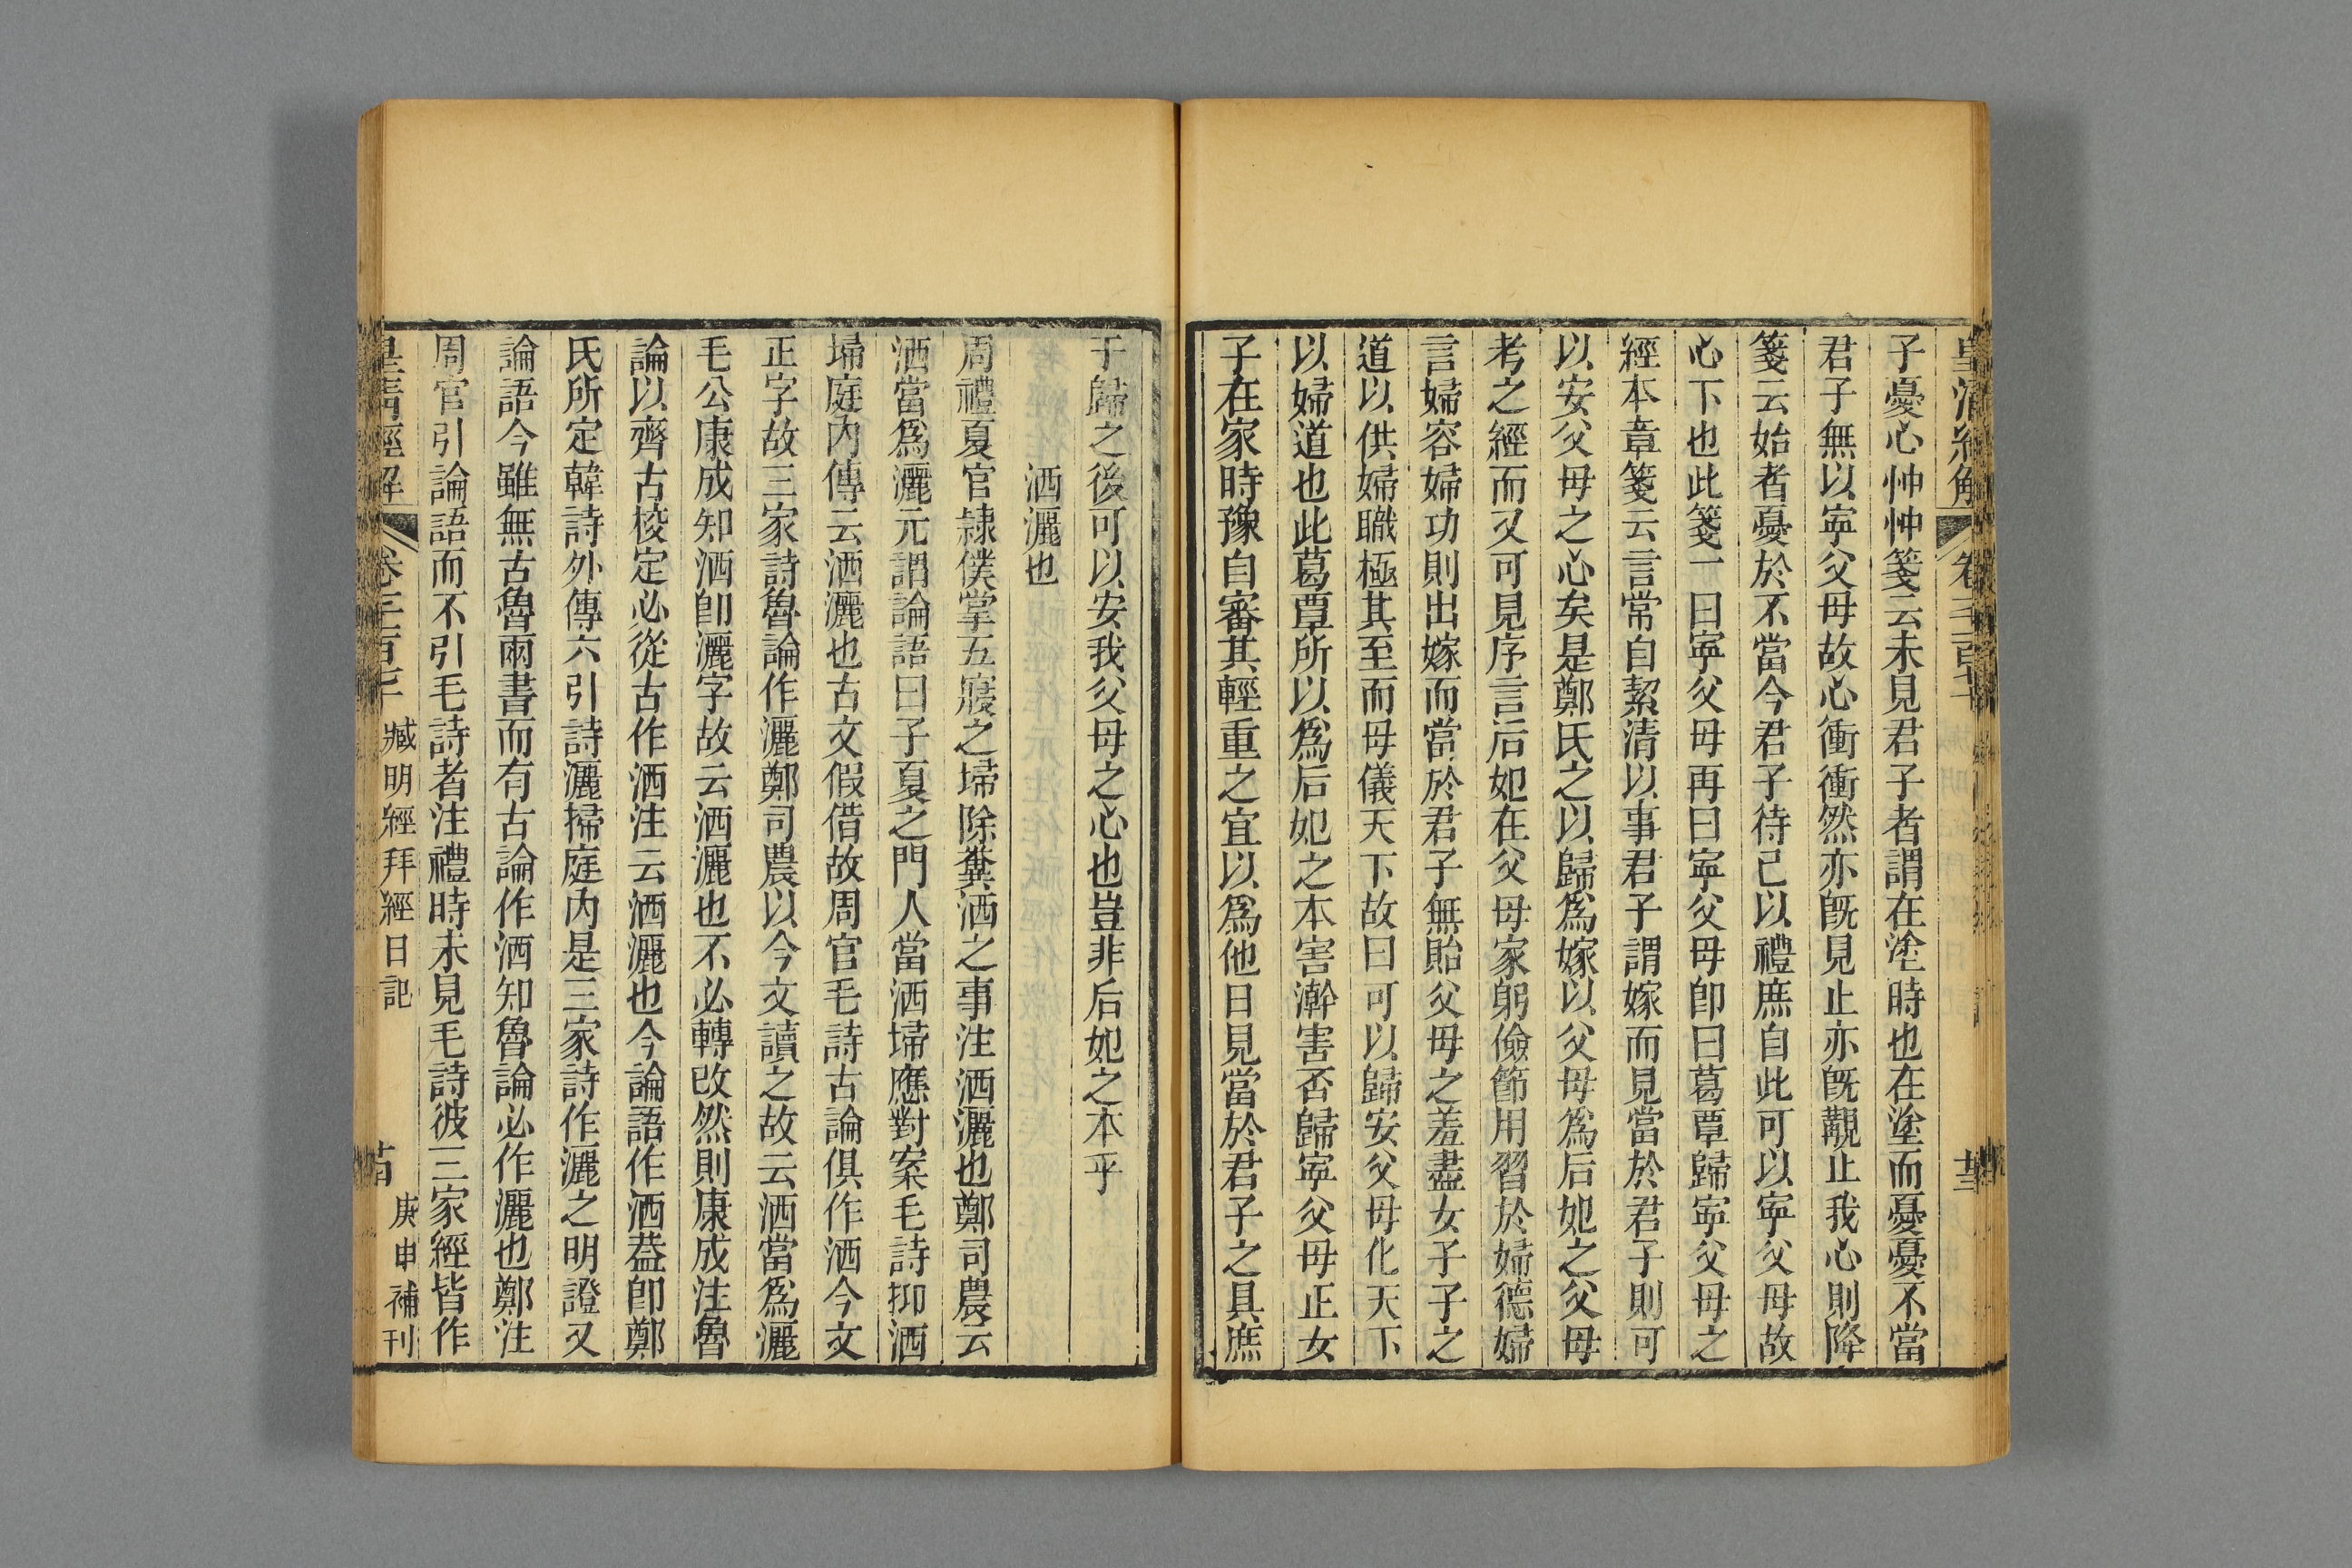 皇清經解
子憂心忡忡箋云未見君子者謂在塗時也在塗而憂憂不當
君子無以寧父母故心衝衝然亦既見止亦既覯止我心則降
箋云始者憂於不當今君子待己以禮庶自此可以寧父母故
心下也此箋一曰寧父母再曰寧父母卽曰葛覃歸寧父母之
經本章箋云言常自絜清以事君子謂嫁而見當於君子則可
以安父母之心矣是鄭氏之以歸爲嫁以父母爲后妃之父母
考之經而又可見序言后妃在父母家躬儉節用習於婦德婦
言婦容婦功則出嫁而當於君子無貽父母之羞盡女子子之
道以供婦職極其至而母儀天下故曰可以歸安父母化天下
以婦道也此葛覃所以爲后妃之本害澣害否歸寧父母正女
子在家時豫自審其輕重之宜以爲他日見當於君子之具庶
于歸之後可以安我父母之心也豈非后妃之本乎
洒灑也
周禮夏官隷僕掌五寢之埽除糞洒之事注洒灑也鄭司農云
洒當爲灑元謂論語曰子夏之門人當洒埽應對案毛詩抑洒
埽庭內傳云洒灑也古文假借故周官毛詩古論俱作洒今文
正字故三家詩魯論作灑鄭司農以今文讀之故云洒當爲灑
毛公康成知洒卽灑字故云洒灑也不必轉改然則康成注魯
論以齊古校定必從古作洒注云洒灑也今論語作洒葢卽鄭
氏所定韓詩外傳六引詩灑掃庭內是三家詩作灑之明證又
論語今雖無古魯兩書而有古論作洒知魯論必作灑也鄭注
周官引論語而不引毛詩者注禮時未見毛詩彼三家經皆作
皇清經解
臧明經拜經日記
庚申補刊